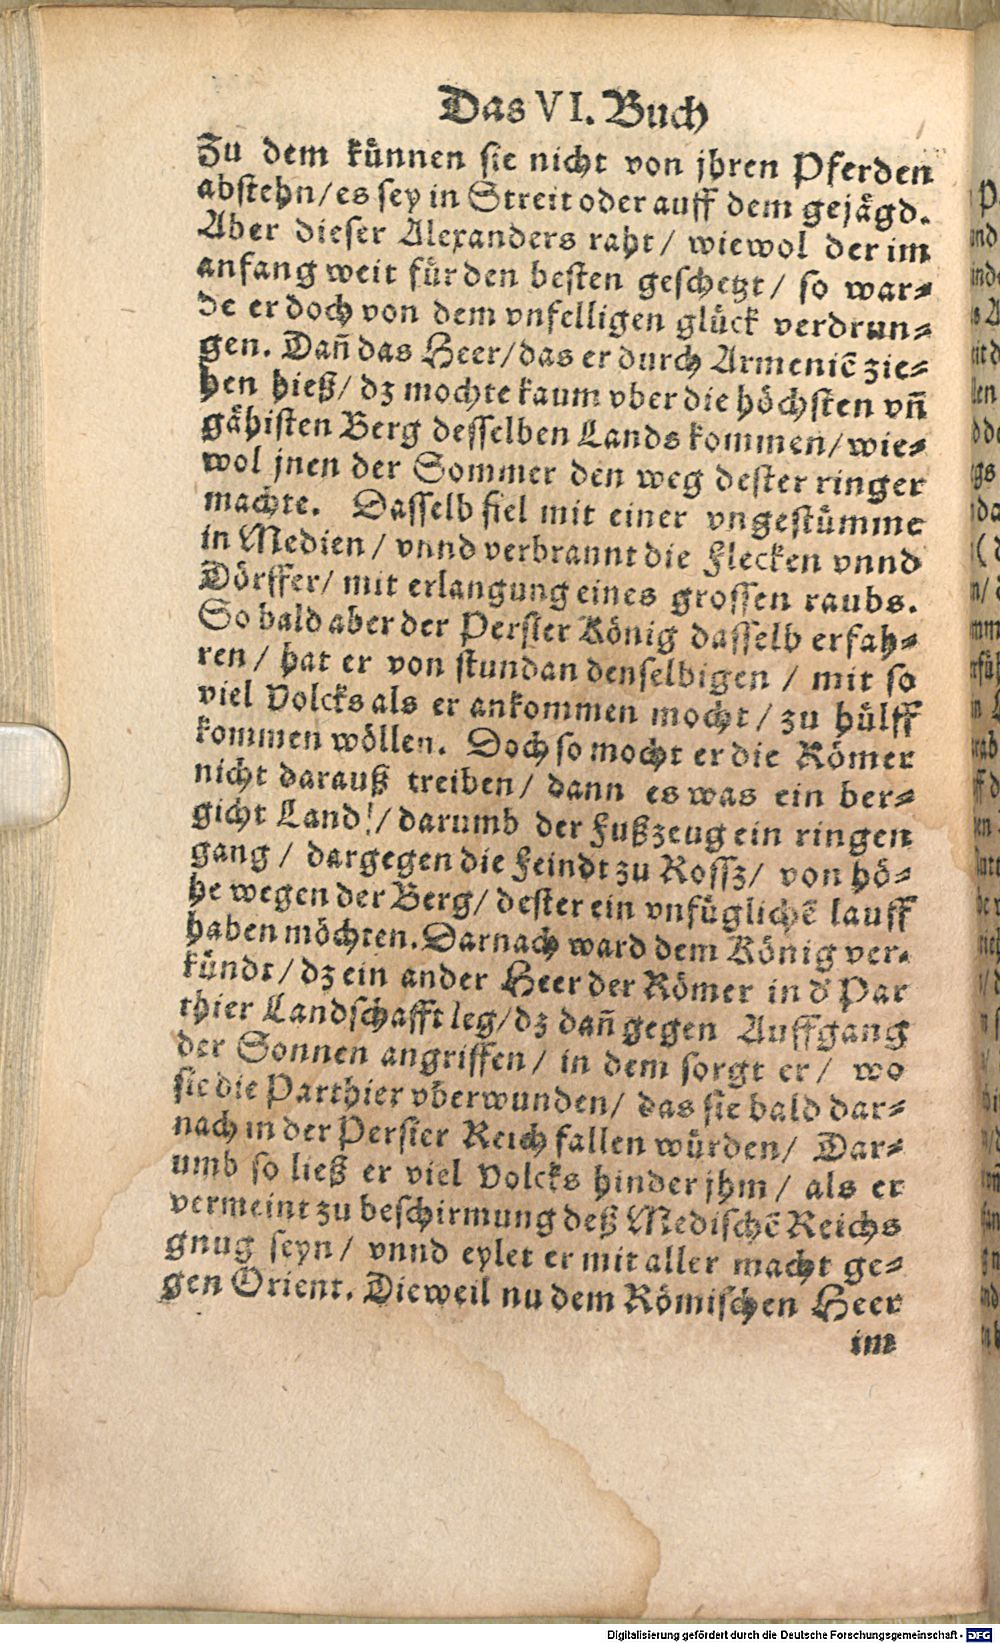 Das VI. Buch
Zu dem künnen sie nicht von jhren Pferden
abstehn/ es sey in Streit oder auff dem gejägd.
Aber dieser Alexanders raht/ wiewol der im
anfang weit für den besten geschetzt/ so war⸗
de er doch von dem vnselligen glück verdrun⸗
gen. Dañ das Heer/ das er durch Armeniē zie⸗
hen hieß/ dz mochte kaum vber die höchsten vñ
gähisten Berg desselben Lands kommen/ wie⸗
wol jnen der Sommer den weg dester ringer
machte. Dasselb fiel mit einer vngestümme
in Medien/ vnnd verbrannt die Flecken vnnd
Dörffer/ mit erlangung eines grossen raubs.
So bald aber der Persier König dasselb erfah⸗
ren/ hat er von stundan denselbigen/ mit so
viel Volcks als er ankommen mocht/ zu hülff
kommen wöllen. Doch so mocht er die Römer
nicht darauß treiben/ dann es was ein ber⸗
gicht Land!/ darumb der Fußzeug ein ringen
gang/ dargegen die Feindt zu Rossz/ von hö⸗
he wegen der Berg/ dester ein vnfüglichē lauff
haben möchten. Darnach ward dem König ver⸗
kündt/ dz ein ander Heer der Römer in d' Par
thier Landschafft leg/ dz dañ gegen Auffgang
der Sonnen angriffen/ in dem sorgt er/ wo
sie die Parthier vberwunden/ das sie bald dar⸗
nach in der Persier Reich fallen würden/ Dar⸗
umb so ließ er viel Volcks hinder jhm/ als er
vermeint zu beschirmung deß Medischē Reichs
gnug seyn/ vnnd eylet er mit aller macht ge⸗
gen Orient. Dieweil nu dem Römischen Heer
im
Digitalisierung gefördert durch die Deutsche Forschungsgemeinschaft - DFG